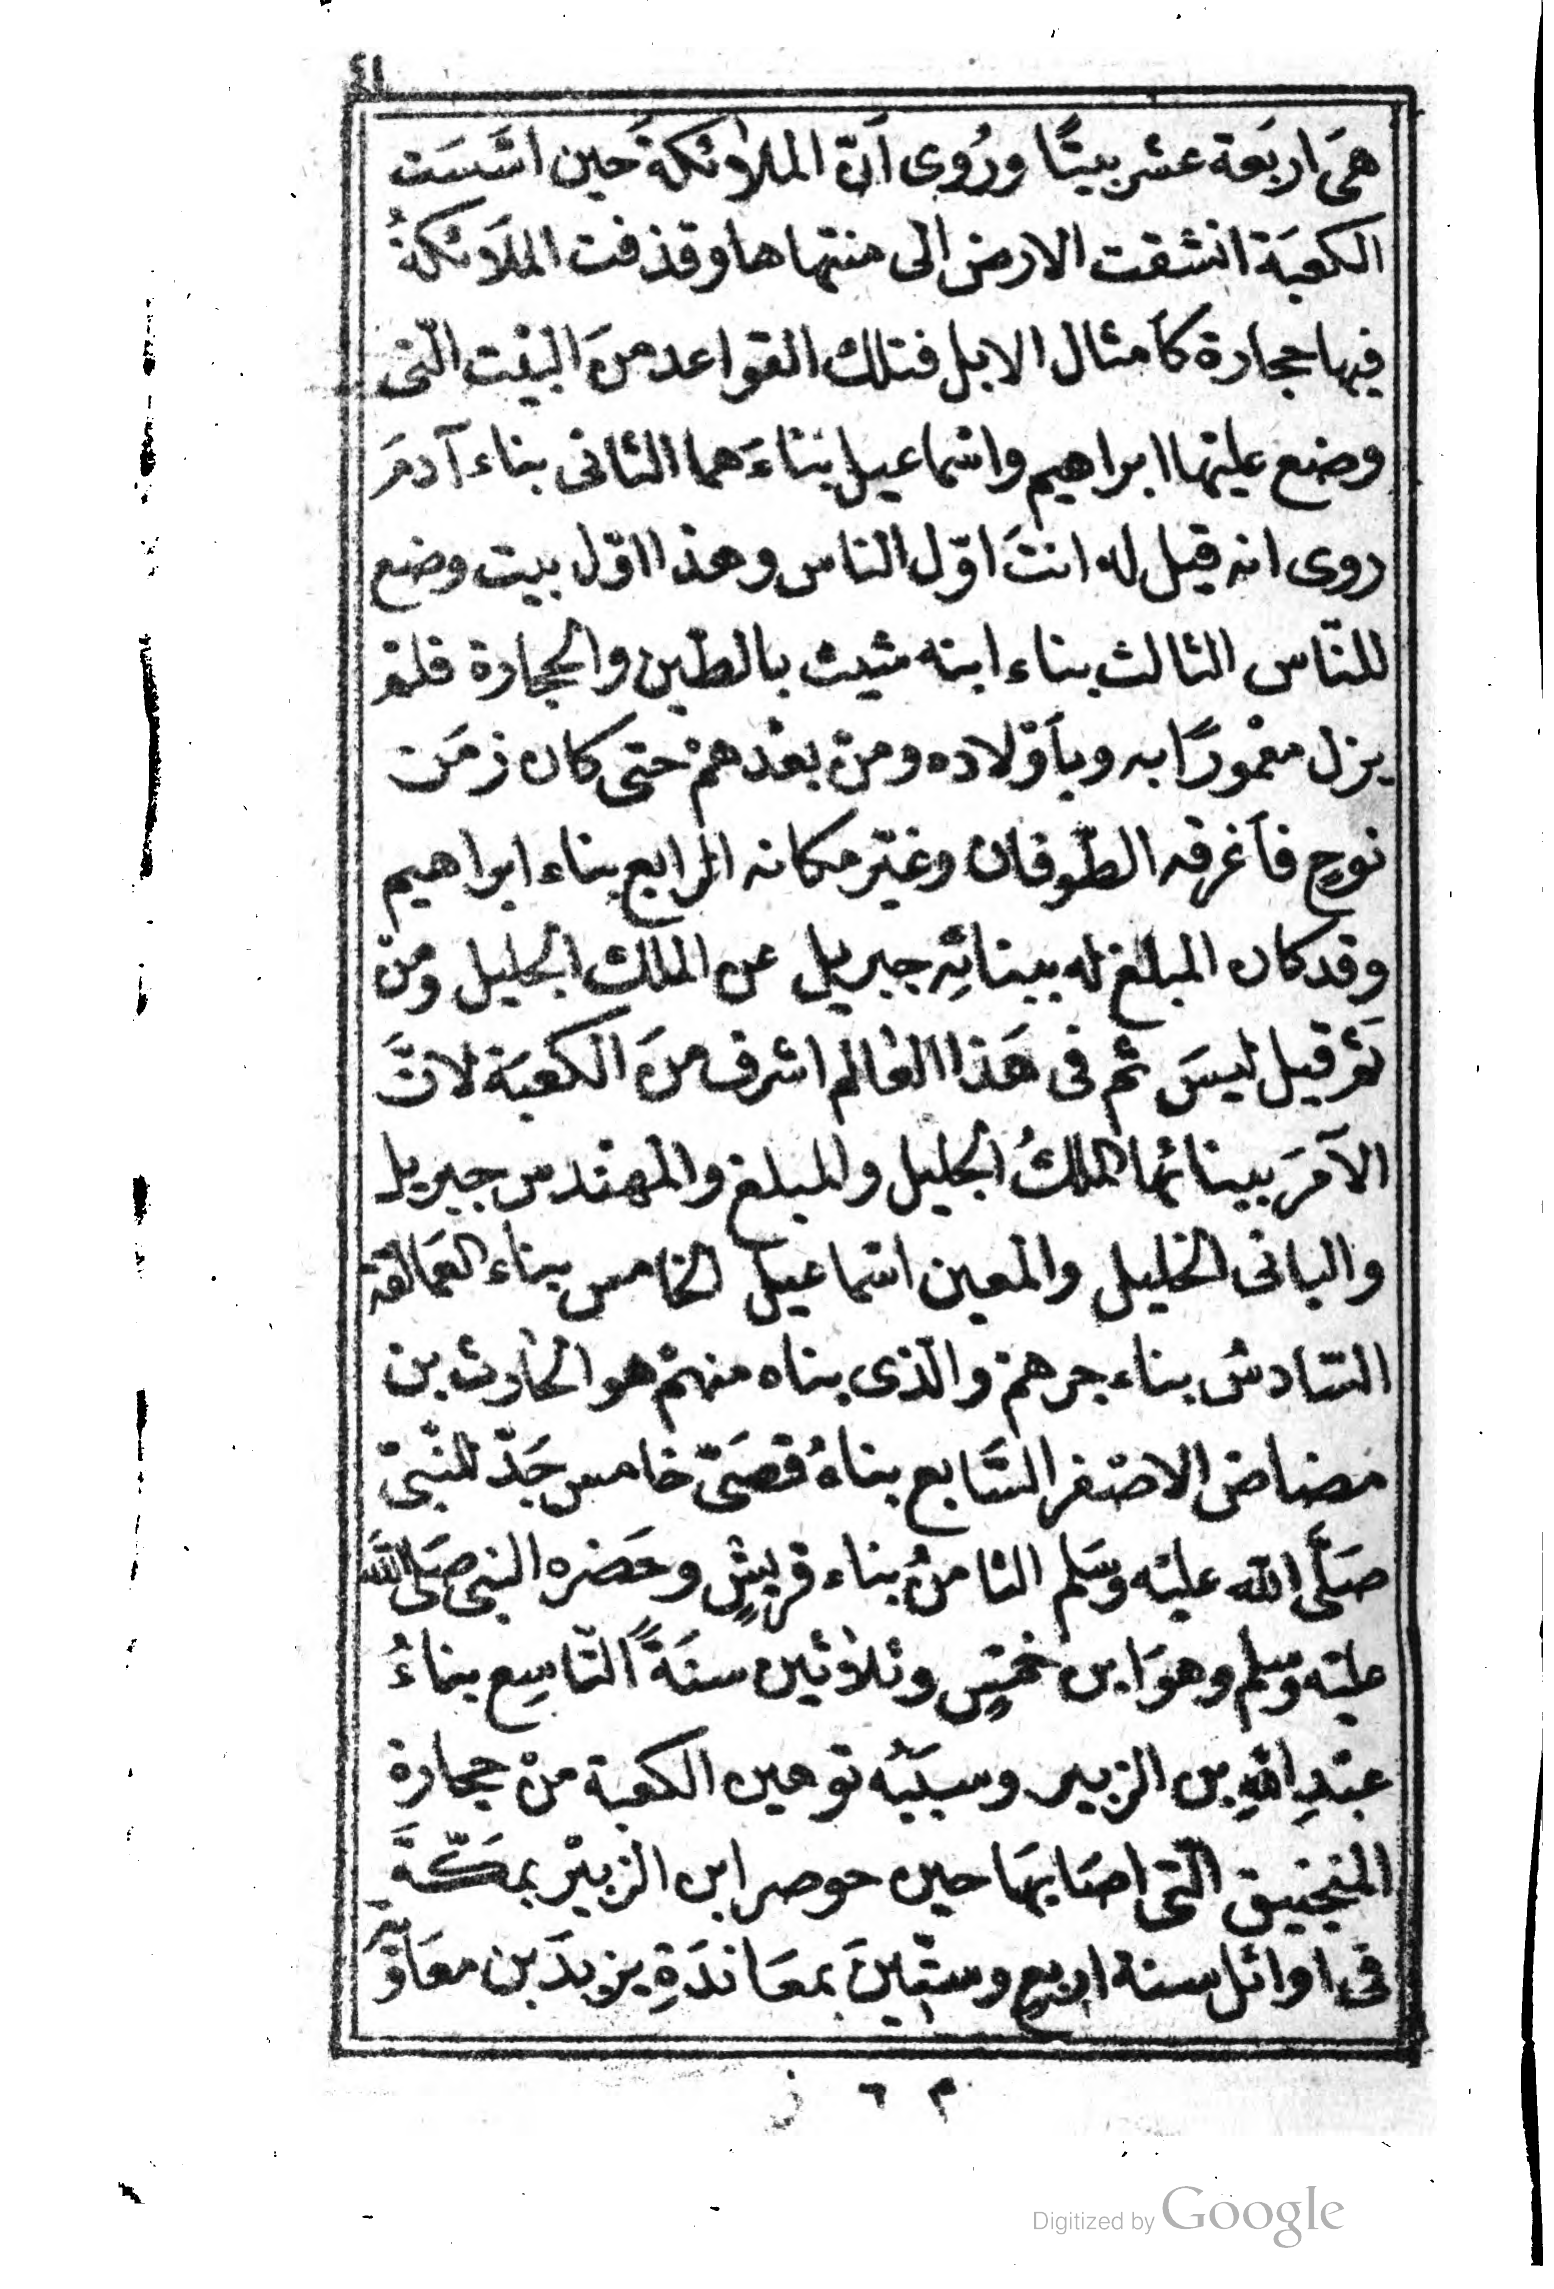 ٤١
هىَ اربَعة عشر بيتًا ورُوى اَنّ الملاٰئكةَ حين اسّسَت
الكعبَة انشقت الارض الى منتهاها وقذفت الملَائكةُ
فيها حجارة كاَمثال الابل فتلك القواعد منَ البيْت التى
وضع عليْها ابراهيم واسْماعيل بناءَهما الثانى بناء آدمَ
روى انه قيل له انتَ اوّل الناس وهذا اوّل بيت وضع
للنّاس الثالث بناء ابنه شيث بالطّين والحجارة فلمْ
يزل معْمورًا به وباَوْلاده ومنْ بعْدهمْ حتى كان زمَن
نوحٍ فاَغرقه الطّوفان وغيّر مكانه الرابع بناء ابراهيم
وقد كان المبلغ له ببنائِه جبريل عن الملك الجليل ومنْ
ثَمّ قيل ليسَ ثم فى هَذا العٰالم اشرف منَ الكعْبَة لانَّ
الآمرَ ببنائها الملكُ الجليل والمبلغ والمهنْدس جبريل
والبانى الخليل والمعين اسْماعيل الخامس بناء العَمالقة
السّادسُ بناء جرهمْ والّذى بناه منهمْ هو الحٰارث بن
مضاض الاصْغر السَّابع بناهُ قصَىّ خامس جَدّ للنّبىّ
صَلَّى الله عليْه وسَلم الثامنُ بناء قريشٍ وحَضره النبى صَلى الله
عليْه وسلم وهوَ ابن خمْسٍ وثلاٰثين سنَةً التّاسِع بناءُ
عبْدِ اللهِ بن الزبير وسبَبُه توهين الكعبة منْ حجارة
المنجنيق الّتى اصَابهَا حين حوصر ابن الزبيْر بمَكّةَ
فى اوائل سنة اربعٍ وستّينَ بمعَاندَةِ يزيدَ بن معَاوية
م ٦ ز
Digitized by Google